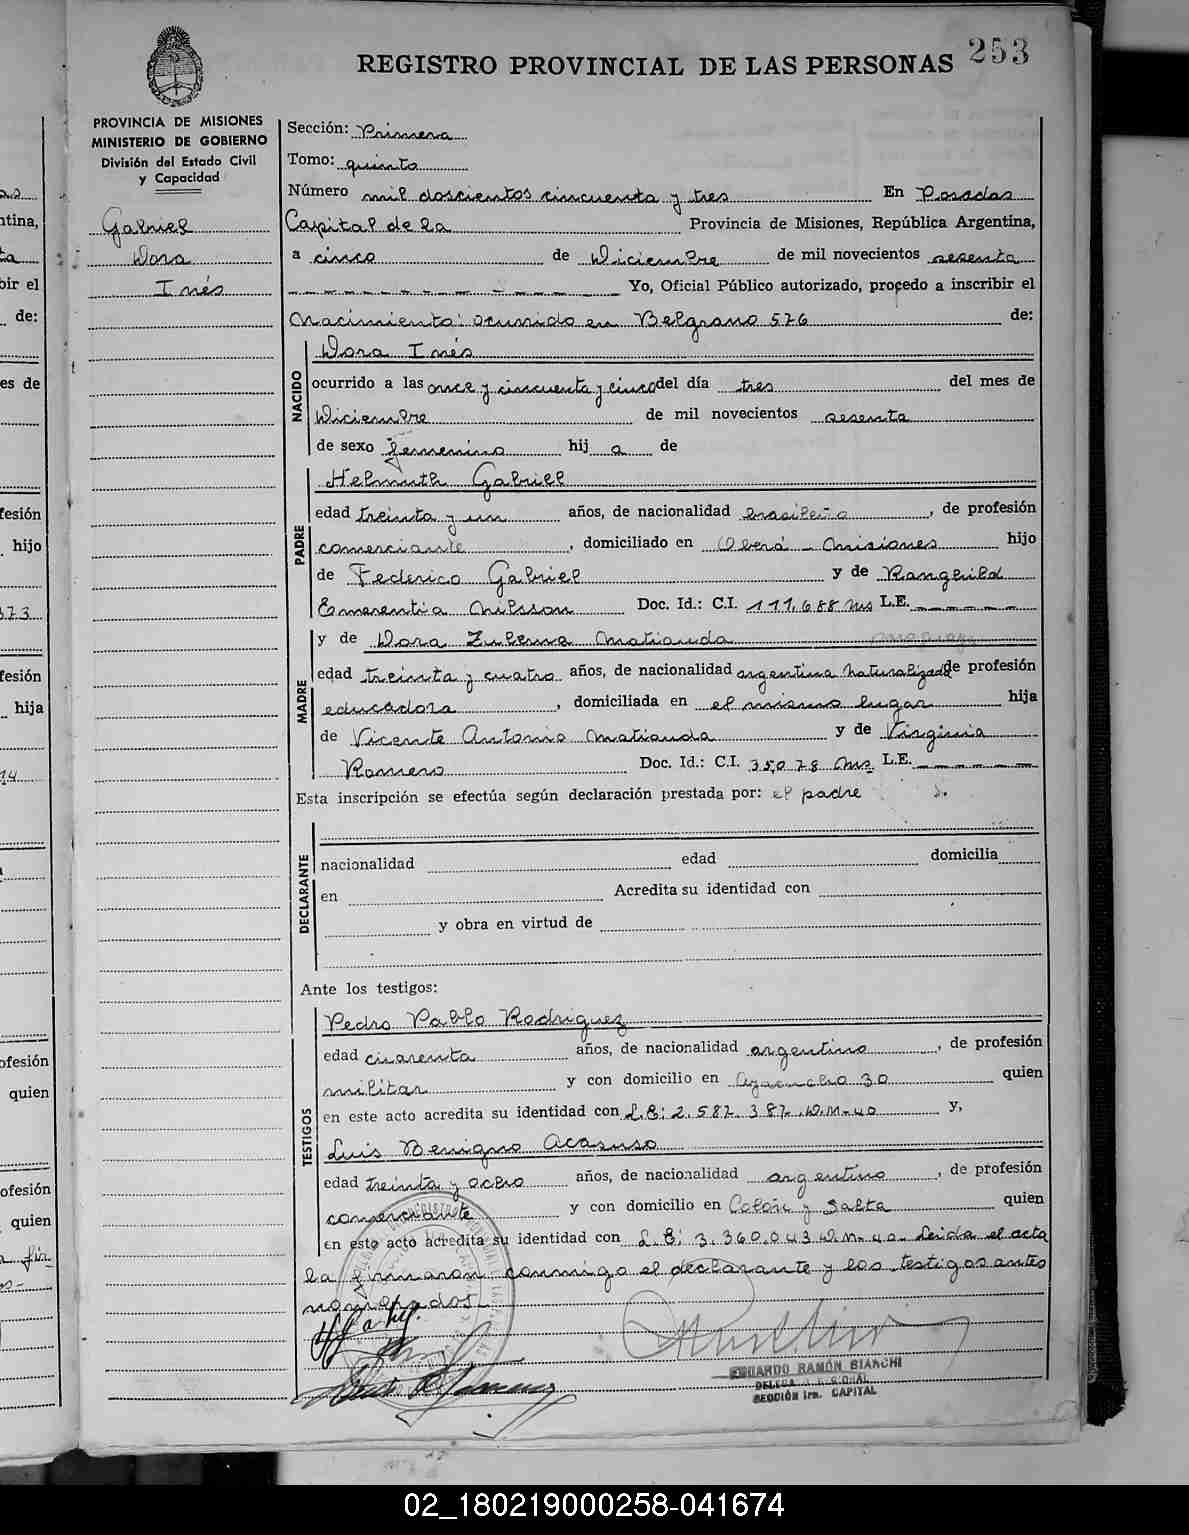 253
REGISTRO PROVINCIAL DE LAS PERSONAS
PROVINCIA DE MISIONES
MINISTERIO DE GOBIERNO
División del Estado Civil
y Capacidad
Gabriel
Dora
Inés
Sección: Primera
Tomo: quinto
Número mil doscientos cincuenta y tres En Posadas
Capital de la Provincia de Misiones, República Argentina,
a cinco de Diciembre de mil novecientos sesenta
Yo, Oficial Público autorizado, procedo a inscribir el
Nacimiento: ocurrido en Belgrano 576 de:
NACIDO
Dora Inés
ocurrido a las once y cincuenta y cinco del día tres del mes de
Diciembre de mil novecientos sesenta
de sexo femenino hij a de
PADRE
Helmuth Gabriel
edad treinta y un años, de nacionalidad brasileño, de profesión
comerciante, domiciliado en Oberá - Misiones hijo
de Federico Gabriel y de Ranghild
Emerentia Nilsson Doc. Id.: C.I. 111.688 Mns L.E.
MADRE
y de Dora Zulema Matiauda
edad treinta y cuatro años, de nacionalidad argentina naturalizada de profesión
educadora, domiciliada en el mismo lugar hija
de Vicente Antonio Matiauda y de Virginia
Romero Doc. Id.: C.I. 35.078 Mns L.E.
Esta inscripción se efectúa según declaración prestada por: el padre
DECLARANTE
nacionalidad edad domicilia
en Acredita su identidad con
y obra en virtud de
Ante los testigos:
TESTIGOS
Pedro Pablo Rodriguez
edad cuarenta años, de nacionalidad argentino, de profesión
militar y con domicilio en Ayacucho 30 quien
en este acto acredita su identidad con L.E: 2.587.387.D.M-40 y,
Luis Benigno Acasuso
edad treinta y ocho años, de nacionalidad argentino, de profesión
comerciante y con domicilio en Colón y Salta quien
en esto acto acredita su identidad con L.E: 3.360.043 D.M-40- Leida el acta
la firmaron conmigo el declarante y los testigos antes
nombrados.
EDUARDO RAMÓN BIANCHI
SECCIÓN 1ra. CAPITAL
02_180219000258-041674